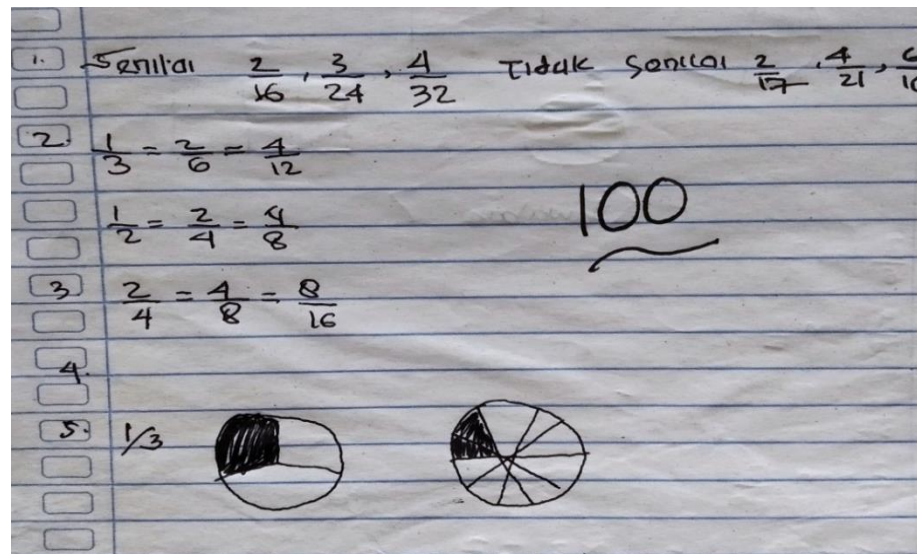 1. Senilai 2/16, 3/24, 4/32 Tidak Senilai 2/17, 4/21,
2. 1/3 = 2/6 = 4/12
1/2 = 2/4 = 4/8
100
3 2/4 = 4/8 = 8/16
4.
5. 1/3